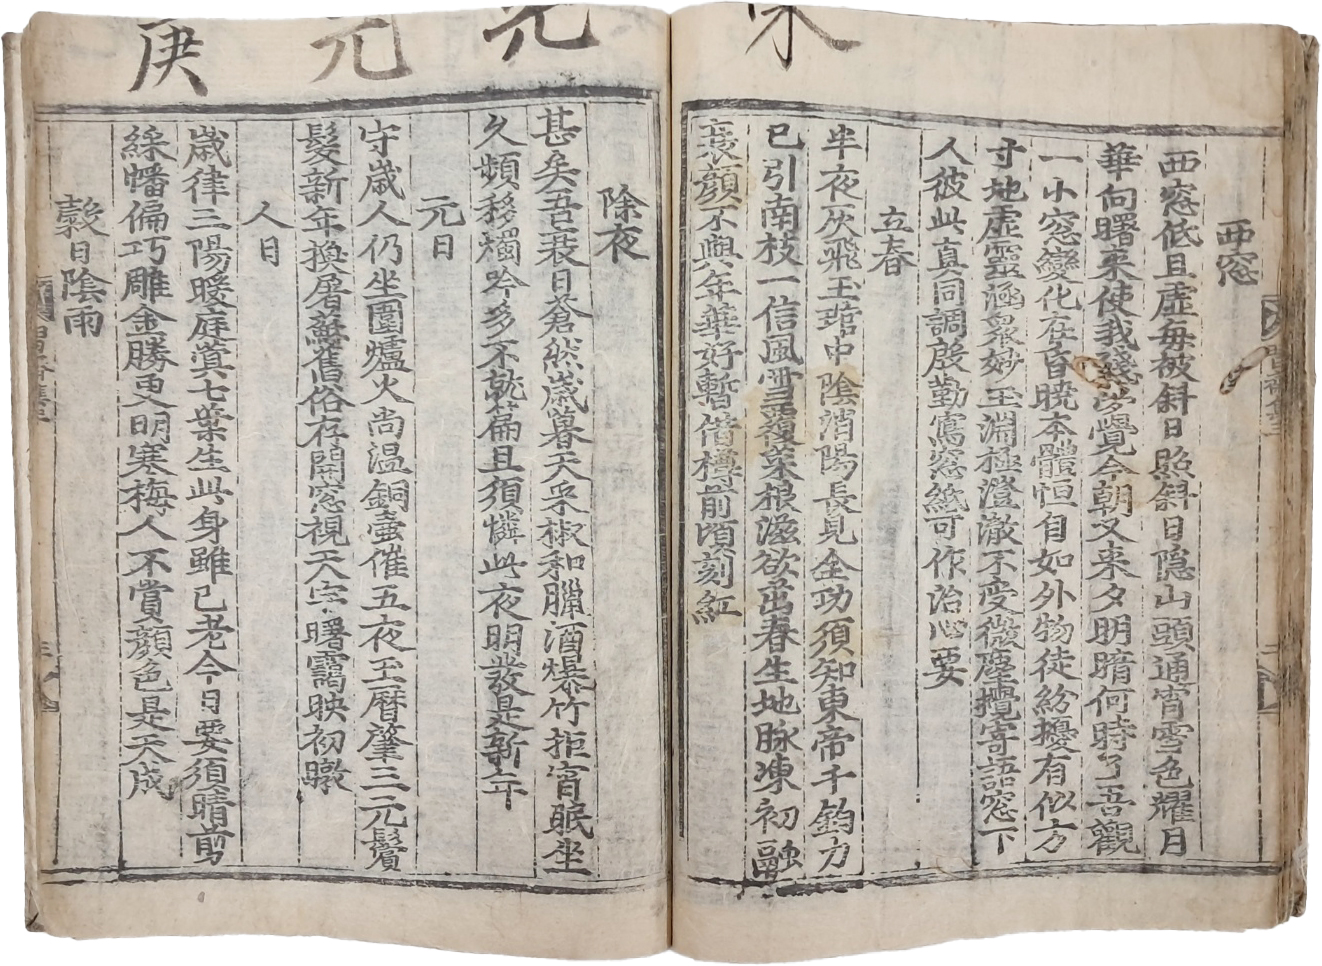 西窓
西窓低且虛每被斜日照斜日隐山頭通宵雪色耀月
華向曙来使我殘夢覺今朝又来夕明暗何時了吾觀
一小窓變化在昏曉本體恒自如外物徒紛擾有似方
寸地虛靈涵衆妙玉淵極澄澈不受微塵攪寄語窓下
人彼此真同調慇勤寫窓紙可作治心要
立春
半夜灰飛玉琯中陰消陽長見全功須知東帝千鈞力
已引南枝一信風雪覆菜根滋欲茁春生地脉凍初融
衰顔不與年華好暫借樽前頃刻紅
除夜
甚矣吾衰日蒼然歲暮天采椒和臘酒爆竹拒宵眠坐
久頻移燭吟多不就篇且須憐此夜明發是新年
元日
守歲人仍坐圍爐火尚温銅壷催五夜玉曆肇三元鬢
髮新年換屠蘇舊俗存開窓視天宇曙靄映初暾
人日
歲律三陽暖庭蓂七葉生此身雖已老今日要須晴剪
綵幡偏巧雕金勝更明寒梅人不賞顔色是天成
穀日陰雨
元
庚